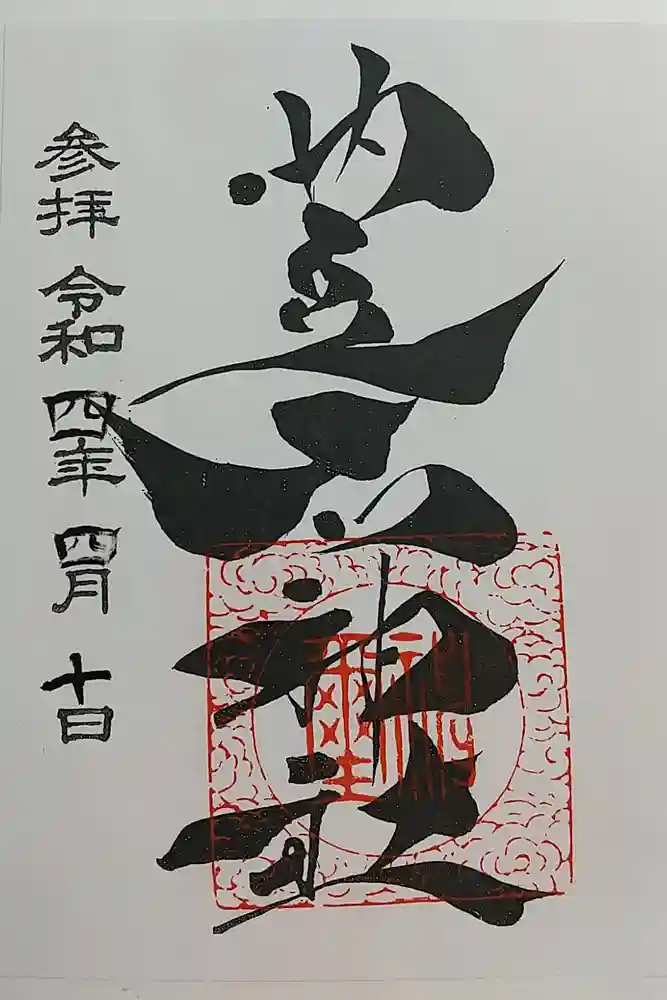 神社
参拝 令和四年 四月 十日
神璽